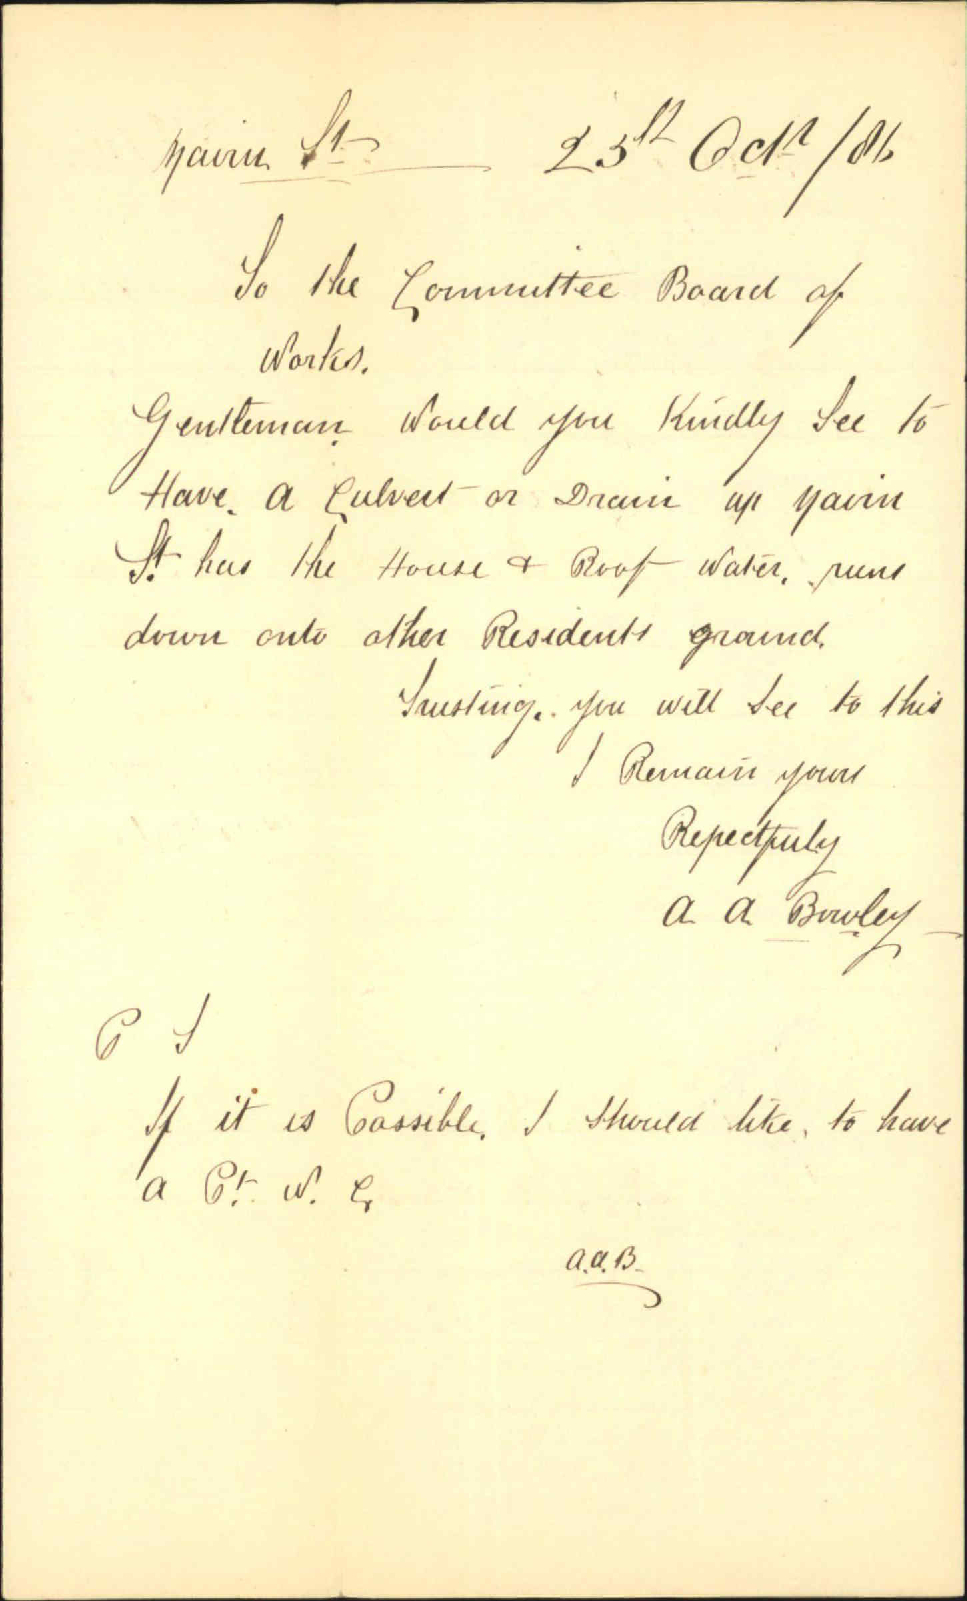 Gavin St 25st Octr /86
To the Committee Board of
Works.
Gentleman Would you Kindly See to
Have. a Culvert or Drain up Gavin
St. has the House & Roof Water, runs
down onto other Residents ground.
Trusting. you will See to this
I Remain yours
Repectfuly
A A Bowley
P S
If it is Possible. I Should like. to have
a Pt. W. C.
A.A.B.